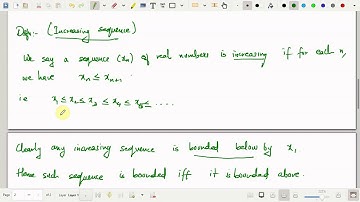 Defn:- (Increasing sequence)
We say a sequence (xn) of real numbers is increasing if for each n,
we have xn ≤ xn+1.
i.e x1 ≤ x2 ≤ x3 ≤ x4 ≤ x5 ≤ ....
Clearly any increasing sequence is bounded below by x1
Hence such sequence is bounded iff it is bounded above.